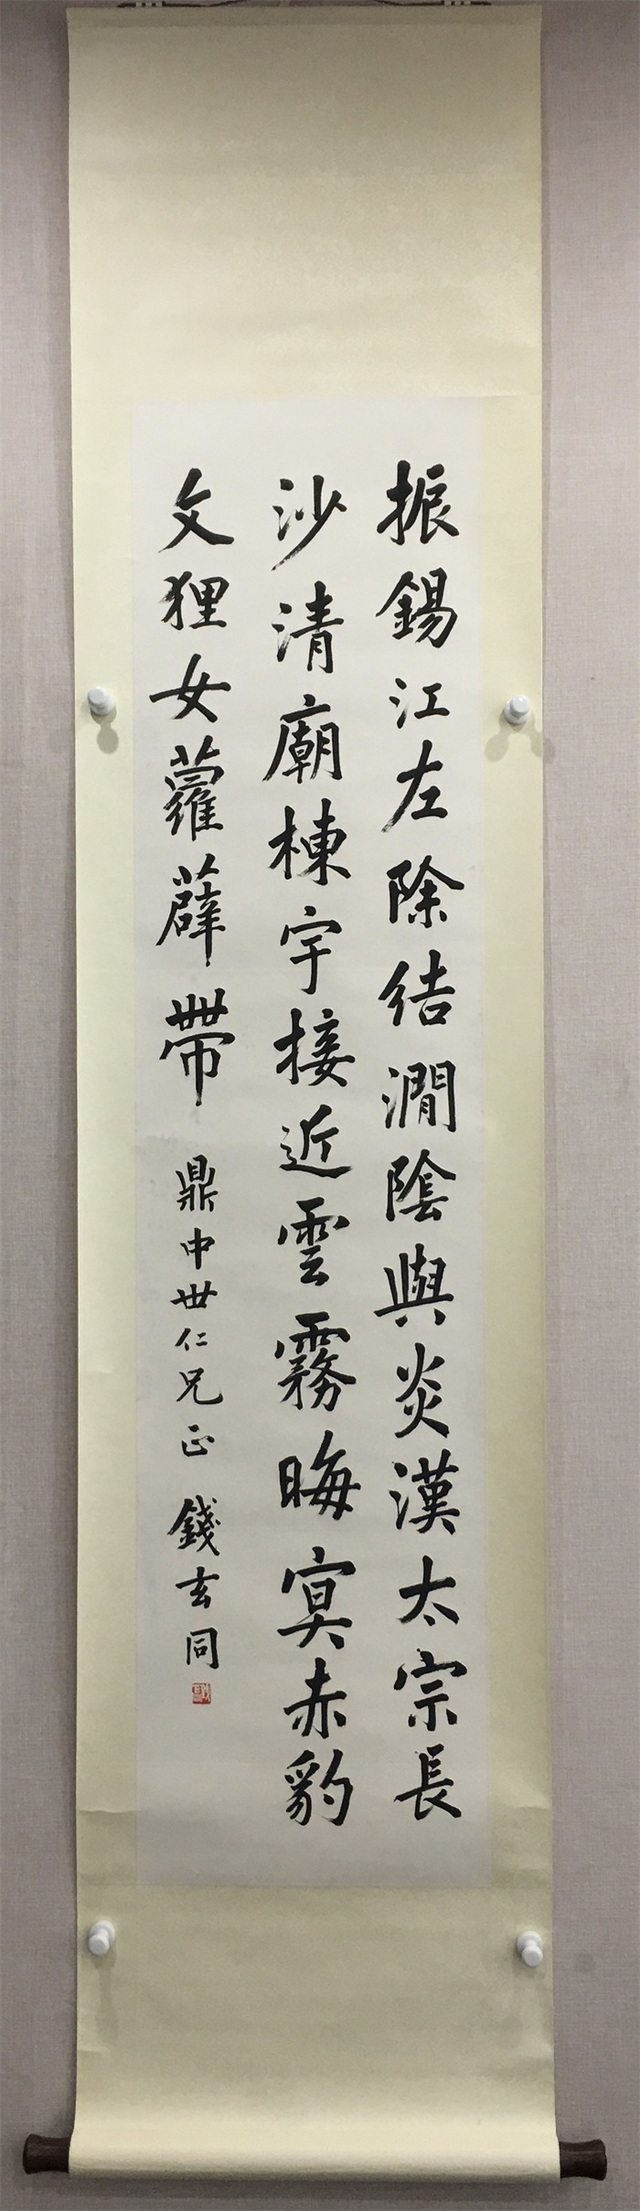 振錫江左除結澗陰與炎漢太宗長
沙清廟棟宇接近雲霧晦冥赤豹
文狸女蘿薜帶
鼎中世仁兄正 錢玄同